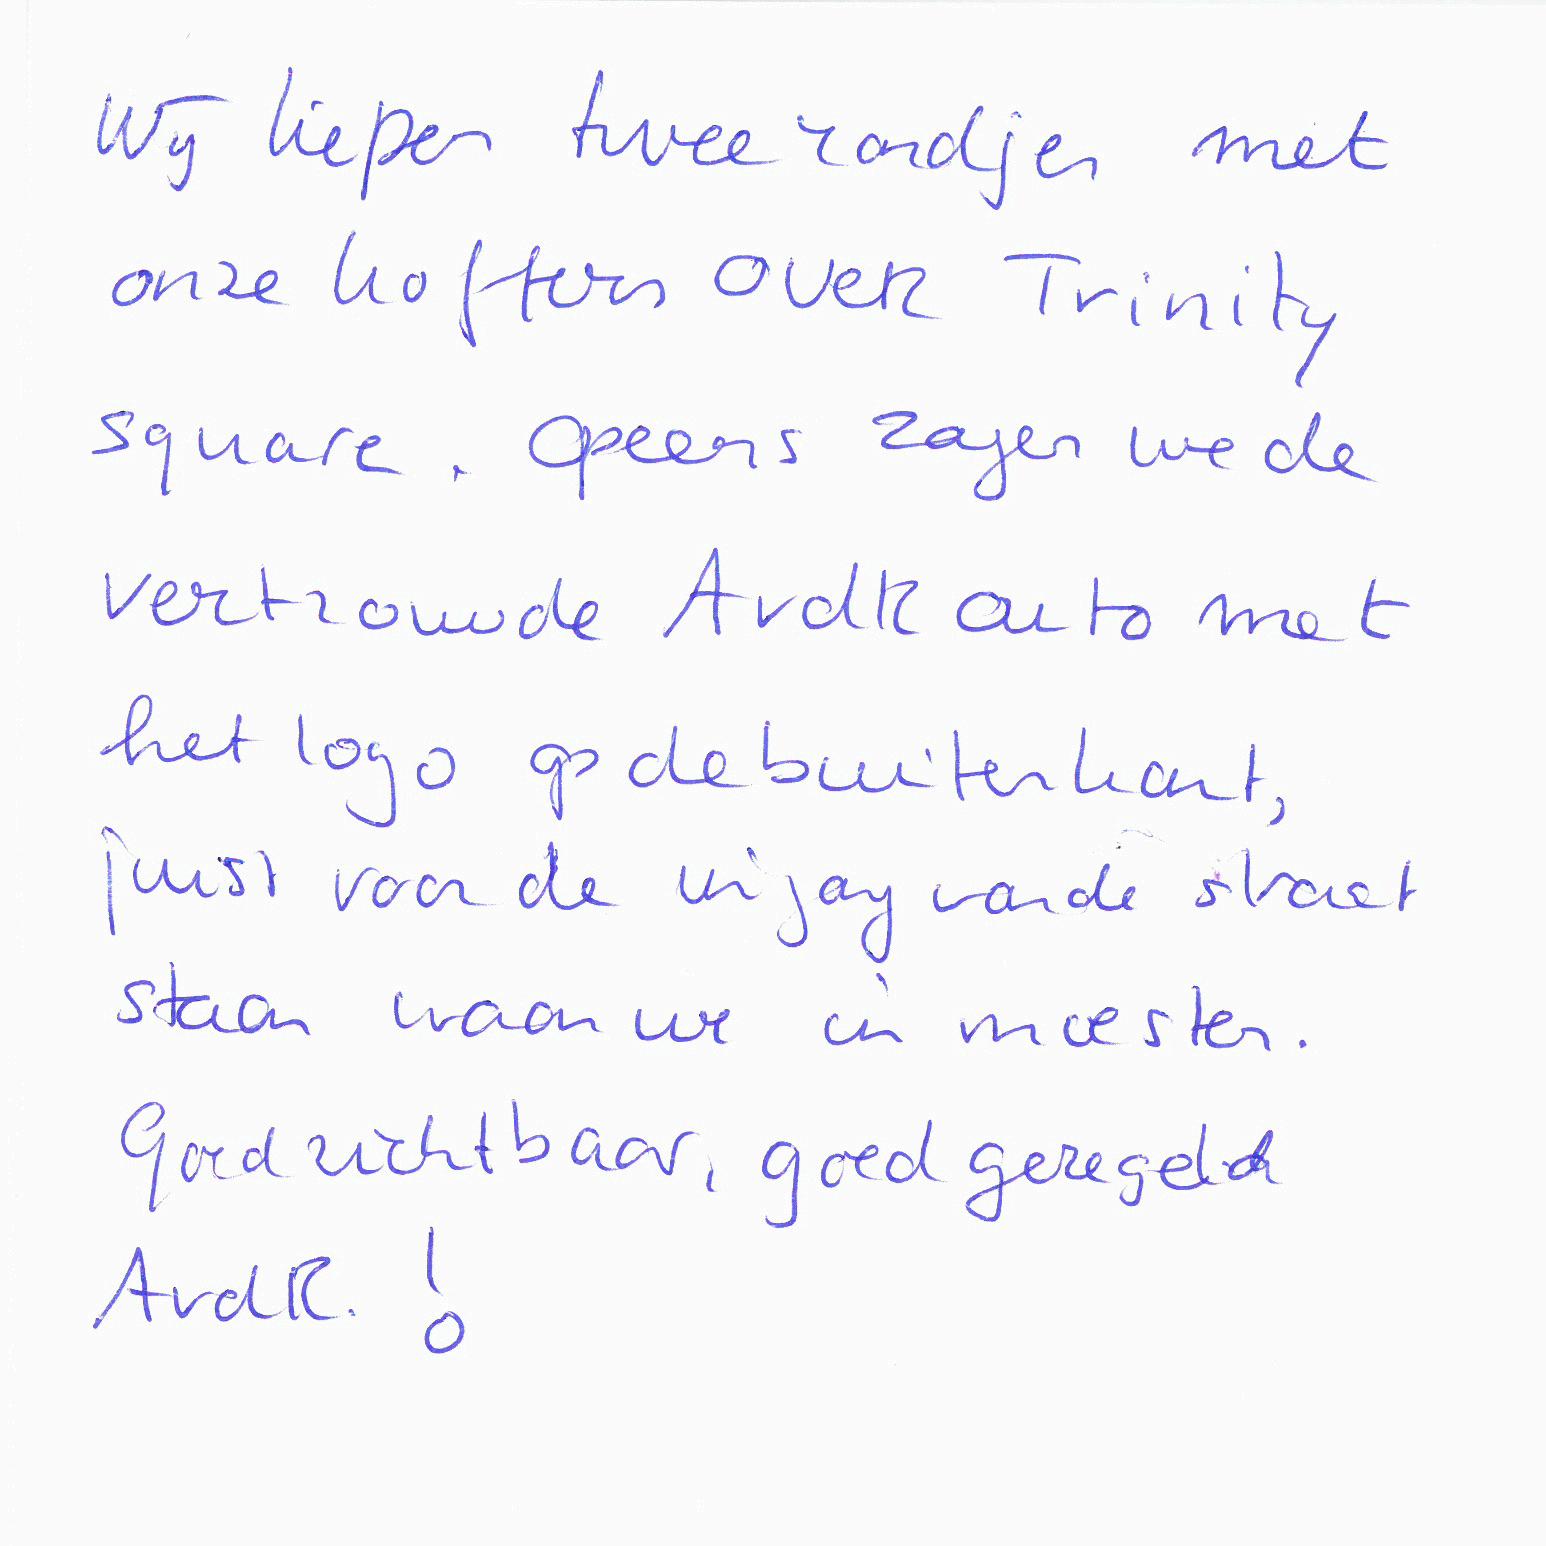 Wij liepen twee rondjes met
onze koffers over Trinity
square. Opeens zagen we de
vertrouwde AvdK auto met
het logo op de buitenkant,
juist voor de ingang van de straat
staan waar we in moesten.
Goed zichtbaar, goed geregeld
AvdK. !